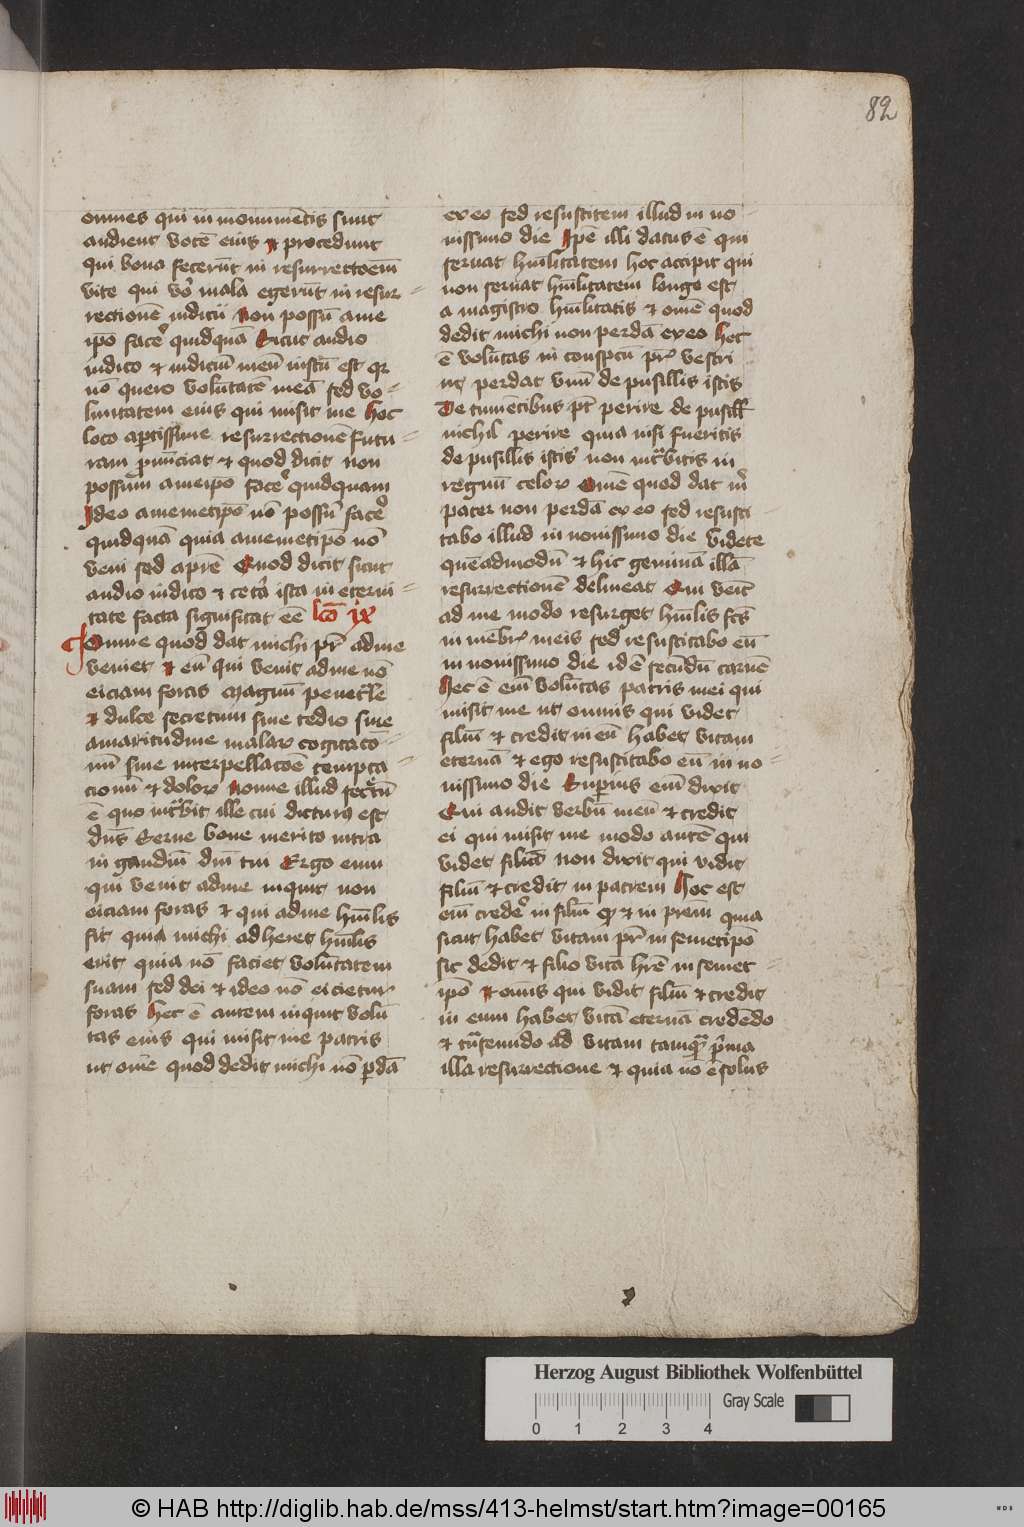 82
omnes qui in monumētis sunt
audient vocē eius et procedunt
qui bona fecerūt in resurrectoēm
vite qui vo mala egerūt in resur
rectionē iudicii Non possū a me
ipō facē quidquā Sicut audio
iudico et iudiciū meū iustū est qr
nō quero volūtatē meā sed vo
luntatem eius qui misit me Hoc
loco aptissime resurrectionē futu
ram pnūciat et quod dicit non
possum a meipō facē quidquam
Ideo a memetipō nō possū facē
quidquā quia a memetipō nō
veni sed a prē Quod dicit sicut
audio iudico et cetā ista in eterni
tate facta significat eē lcō ix
Omne quod dat michi pr̄ ad me
veniet et eū qui venit ad me nō
eiciam foras Magnū penetrale
et dulce secretum sine tedio sine
amaritudine malarꝝ cogitacō
nū sine interpellacōe tempta
cionū et dolorꝝ Nonne illud secretū
ē quo intrabit ille cui dicturus est
dn̄s Serue bone merito intra
in gaudiū dn̄i tui Ergo eum
qui venit ad me inquit non
eiciam foras et qui ad me hūilis
fit quia michi adheret hūilis
erit quia nō faciet volūtatem
suam sed dei et ideo nō eicietur
foras Hec ē autem inquit volū
tas eius qui misit me patris
ut om̄e quod dedit michi nō pdā
ex eo sed resuscitem illud in no
uissimo die Ipē illi datus ē qui
seruat hūilitatem hoc accipit qui
non seruat hūilitatem longe est
a magistro hūilitatis et om̄e quod
dedit michi non perdā ex eo Hec
ē volūtas in conspctu pr̄is vestri
ut perdat vnū de pusillis istis
De tumētibus pt̄ perire de pusill
nichil perire quia nisi fueritis
de pusillis istis non intrabitis in
regnū celorꝝ Omē quod dat m̄
pater non perdā ex eo sed resusci
tabo illud in nouissimo die Videte
quēadmodū et hic geminā illā
resurrectionē delineat Qui venit
ad me modo resurget hūilis fc̄s
in mēbr̄ meis sed resuscitabo eū
in nouissimo die id ē secūdū carnē
Hec ē em̄ volūtas patris mei qui
misit me ut omnis qui videt
filiū et credit in eū habet vitam
eternā et ego resuscitabo eū in no
uissimo die Supius em̄ dixit
Qui audit verbū meū et credit
ei qui misit me modo autē qui
videt filiū non dixit qui vidit
filiū et credit in patrem Hoc est
em̄ credē in filiū qd et in prem̄ quia
sicut habet vitam pr̄ in semetipō
sic dedit et filio vitā hr̄e in semet
ipō Et om̄is qui vidit filiū et credit
in eum habet vitā eternā credēdo
et trāseundo ad vitam tamquā prima
illa resurrectione et quia nō ē solus
Herzog August Bibliothek Wolfenbüttel
Gray Scale
0 1 2 3 4
© HAB http://diglib.hab.de/mss/413-helmst/start.htm?image=00165
WDB